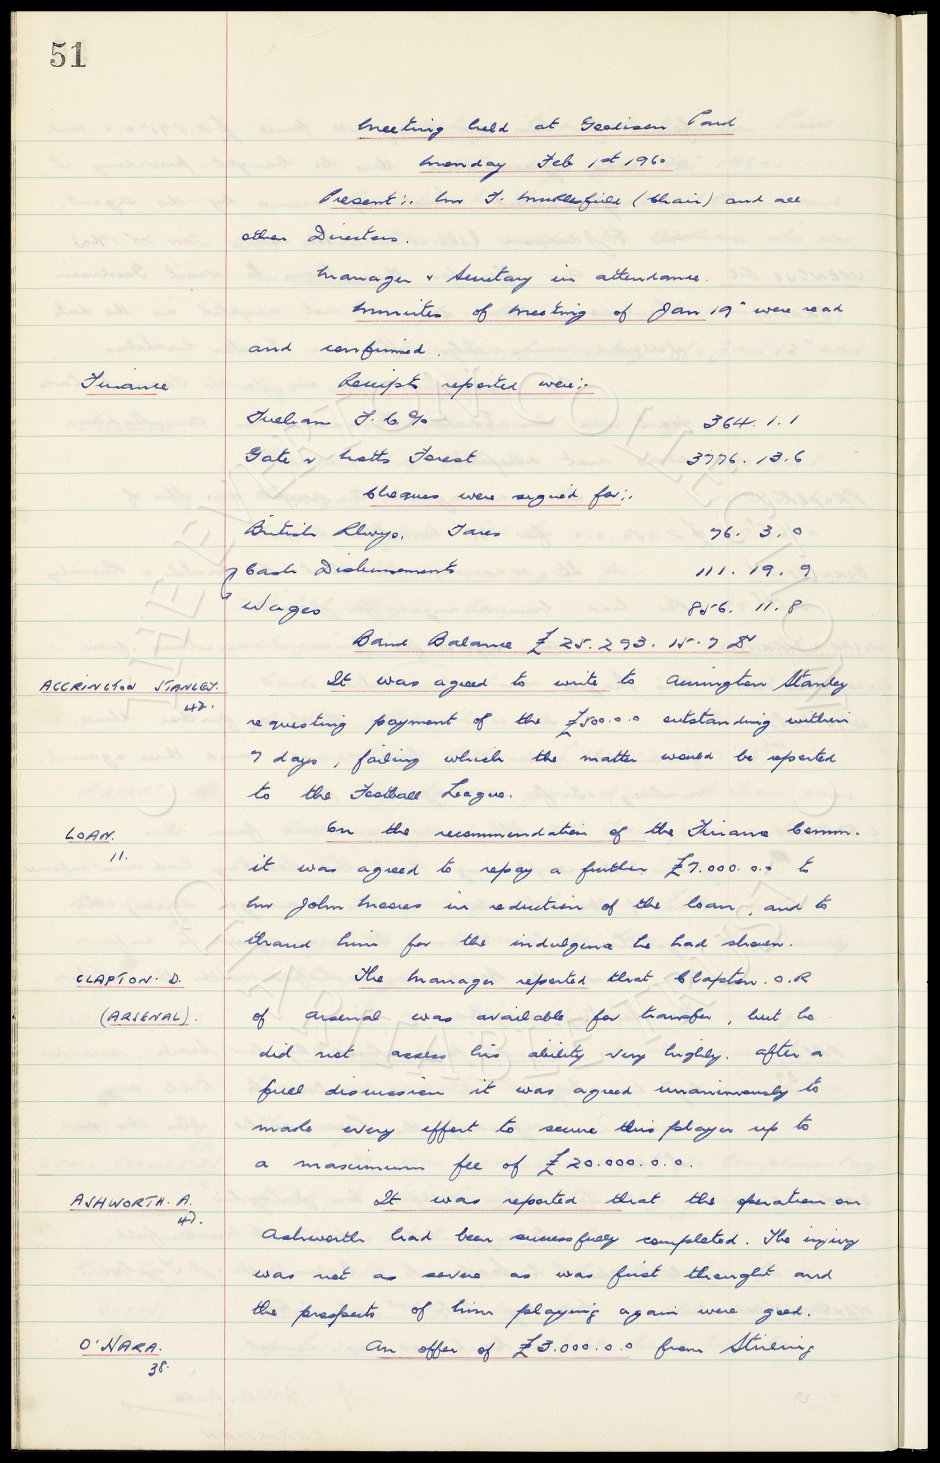 51
Meeting held at Goodison Park
Monday Feb 1st 1960
Present:. Mr F. Micklesfield (Chair) and all
other Directors.
Manager & Secretary in attendance.
Minutes of Meeting of Jan 19" were read
and confirmed.
Finance Receipts reported were:.
Fulham F. C. % 364. 1. 1
Gate v Notts Forest 3776. 13. 6
Cheques were signed for:.
British Rlwys. Fares 76. 3. 0
Cash Disbursements 111. 19. 9
Wages 856. 11. 8
Bank Balance £ 25.293. 15. 7 Dr
ACCRINGTON STANLEY. It was agreed to write to Accrington Stanley
42.
requesting payment of the £500.0.0 outstanding within
7 days, failing which the matter would be reported
to the Football League.
LOAN. On the recommendation of the Finance Comm.
11.
it was agreed to repay a further £7.000.0.0 to
Mr John Moores in reduction of the loan, and to
thank him for the indulgence he had shown.
CLAPTON. D. The Manager reported that Clapton. D. R
(ARSENAL). of Arsenal was available for transfer, but he
did not assess his ability very highly. After a
full discussion it was agreed unanimously to
make every effort to secure this player up to
a maximum fee of £20.000.0.0.
ASHWORTH. A. It was reported that the operation on
47.
Ashworth had been successfully completed. The injury
was not as severe as was first thought and
the prospects of him playing again were good.
O'HARA. An offer of £3.000.0.0 from Stirling
38.